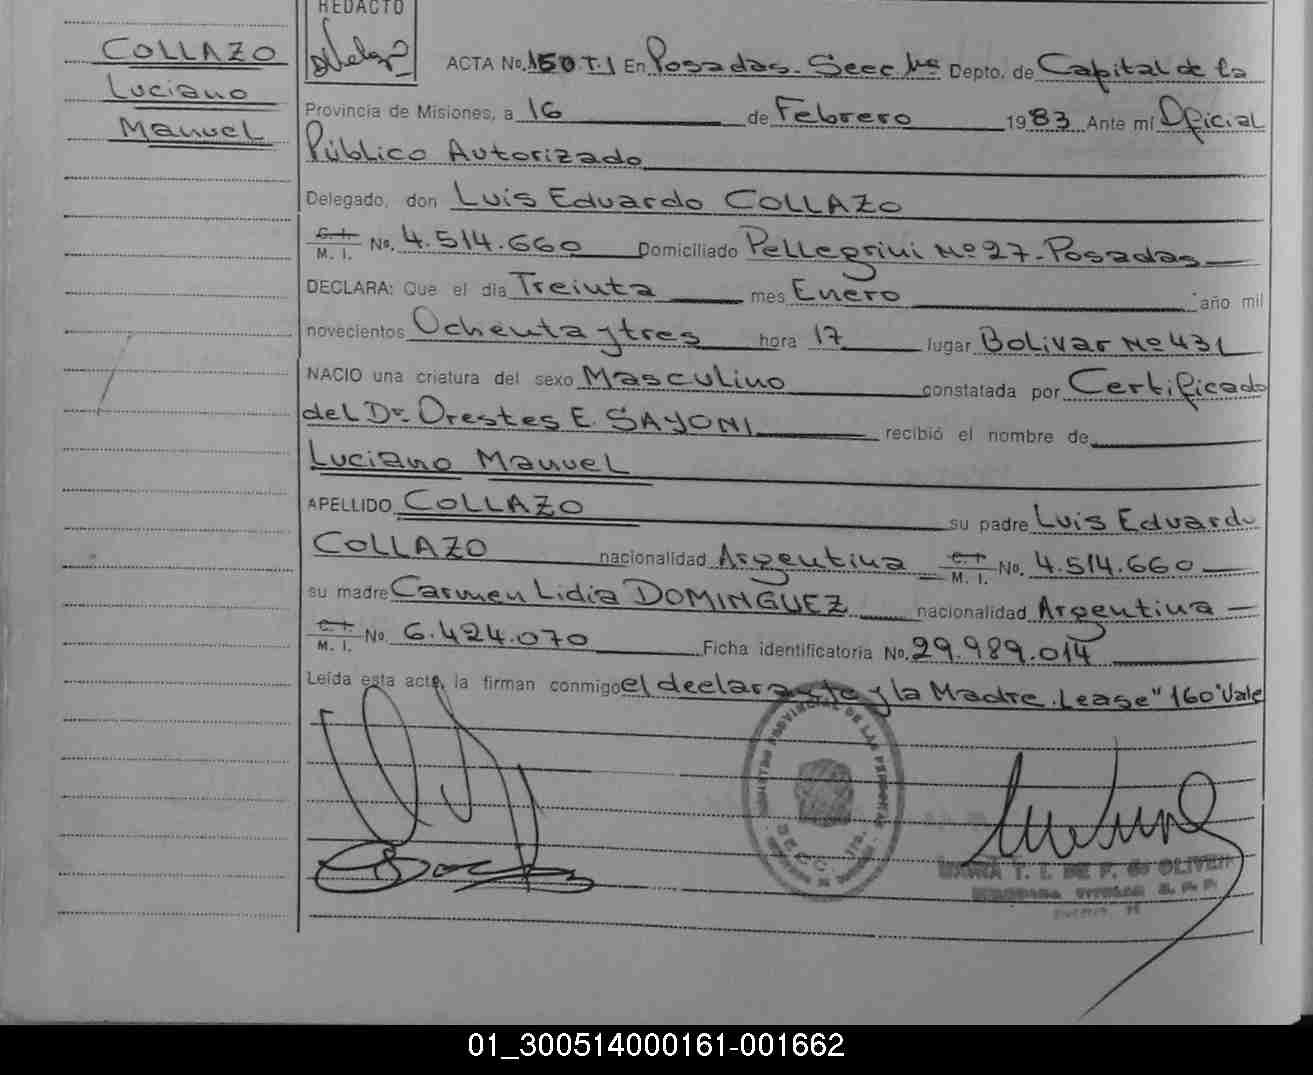 REDACTO
COLLAZO
Luciano
Manuel
ACTA No. 150 T.I En Posadas. Secc 1ra Depto. de Capital de la
Provincia de Misiones, a 16 de Febrero 1983 Ante mí Oficial
Público Autorizado
Delegado, don Luis Eduardo COLLAZO
C. I.
M. I. No. 4.514.660 Domiciliado Pellegrini Nº 27 - Posadas
DECLARA: Que el día Treinta mes Enero año mil
novecientos Ochenta y tres hora 17 lugar Bolivar Nº 431
NACIO una criatura del sexo Masculino constatada por Certificado
del Dr. Orestes E. SAYONI recibió el nombre de
Luciano Manuel
APELLIDO COLLAZO su padre Luis Eduardo
COLLAZO nacionalidad Argentina C. I.
M. I. No. 4.514.660
su madre Carmen Lidia DOMINGUEZ nacionalidad Argentina
C. I.
M. I. No. 6.424.070 Ficha identificatoria No. 29.989.014
Leída esta acta, la firman conmigo el declarante y la Madre. Lease "160" Vale
PROVINCIAL DE LAS PERSONAS
MARIA T. I. DE F. de OLIVEIRA
01_300514000161-001662